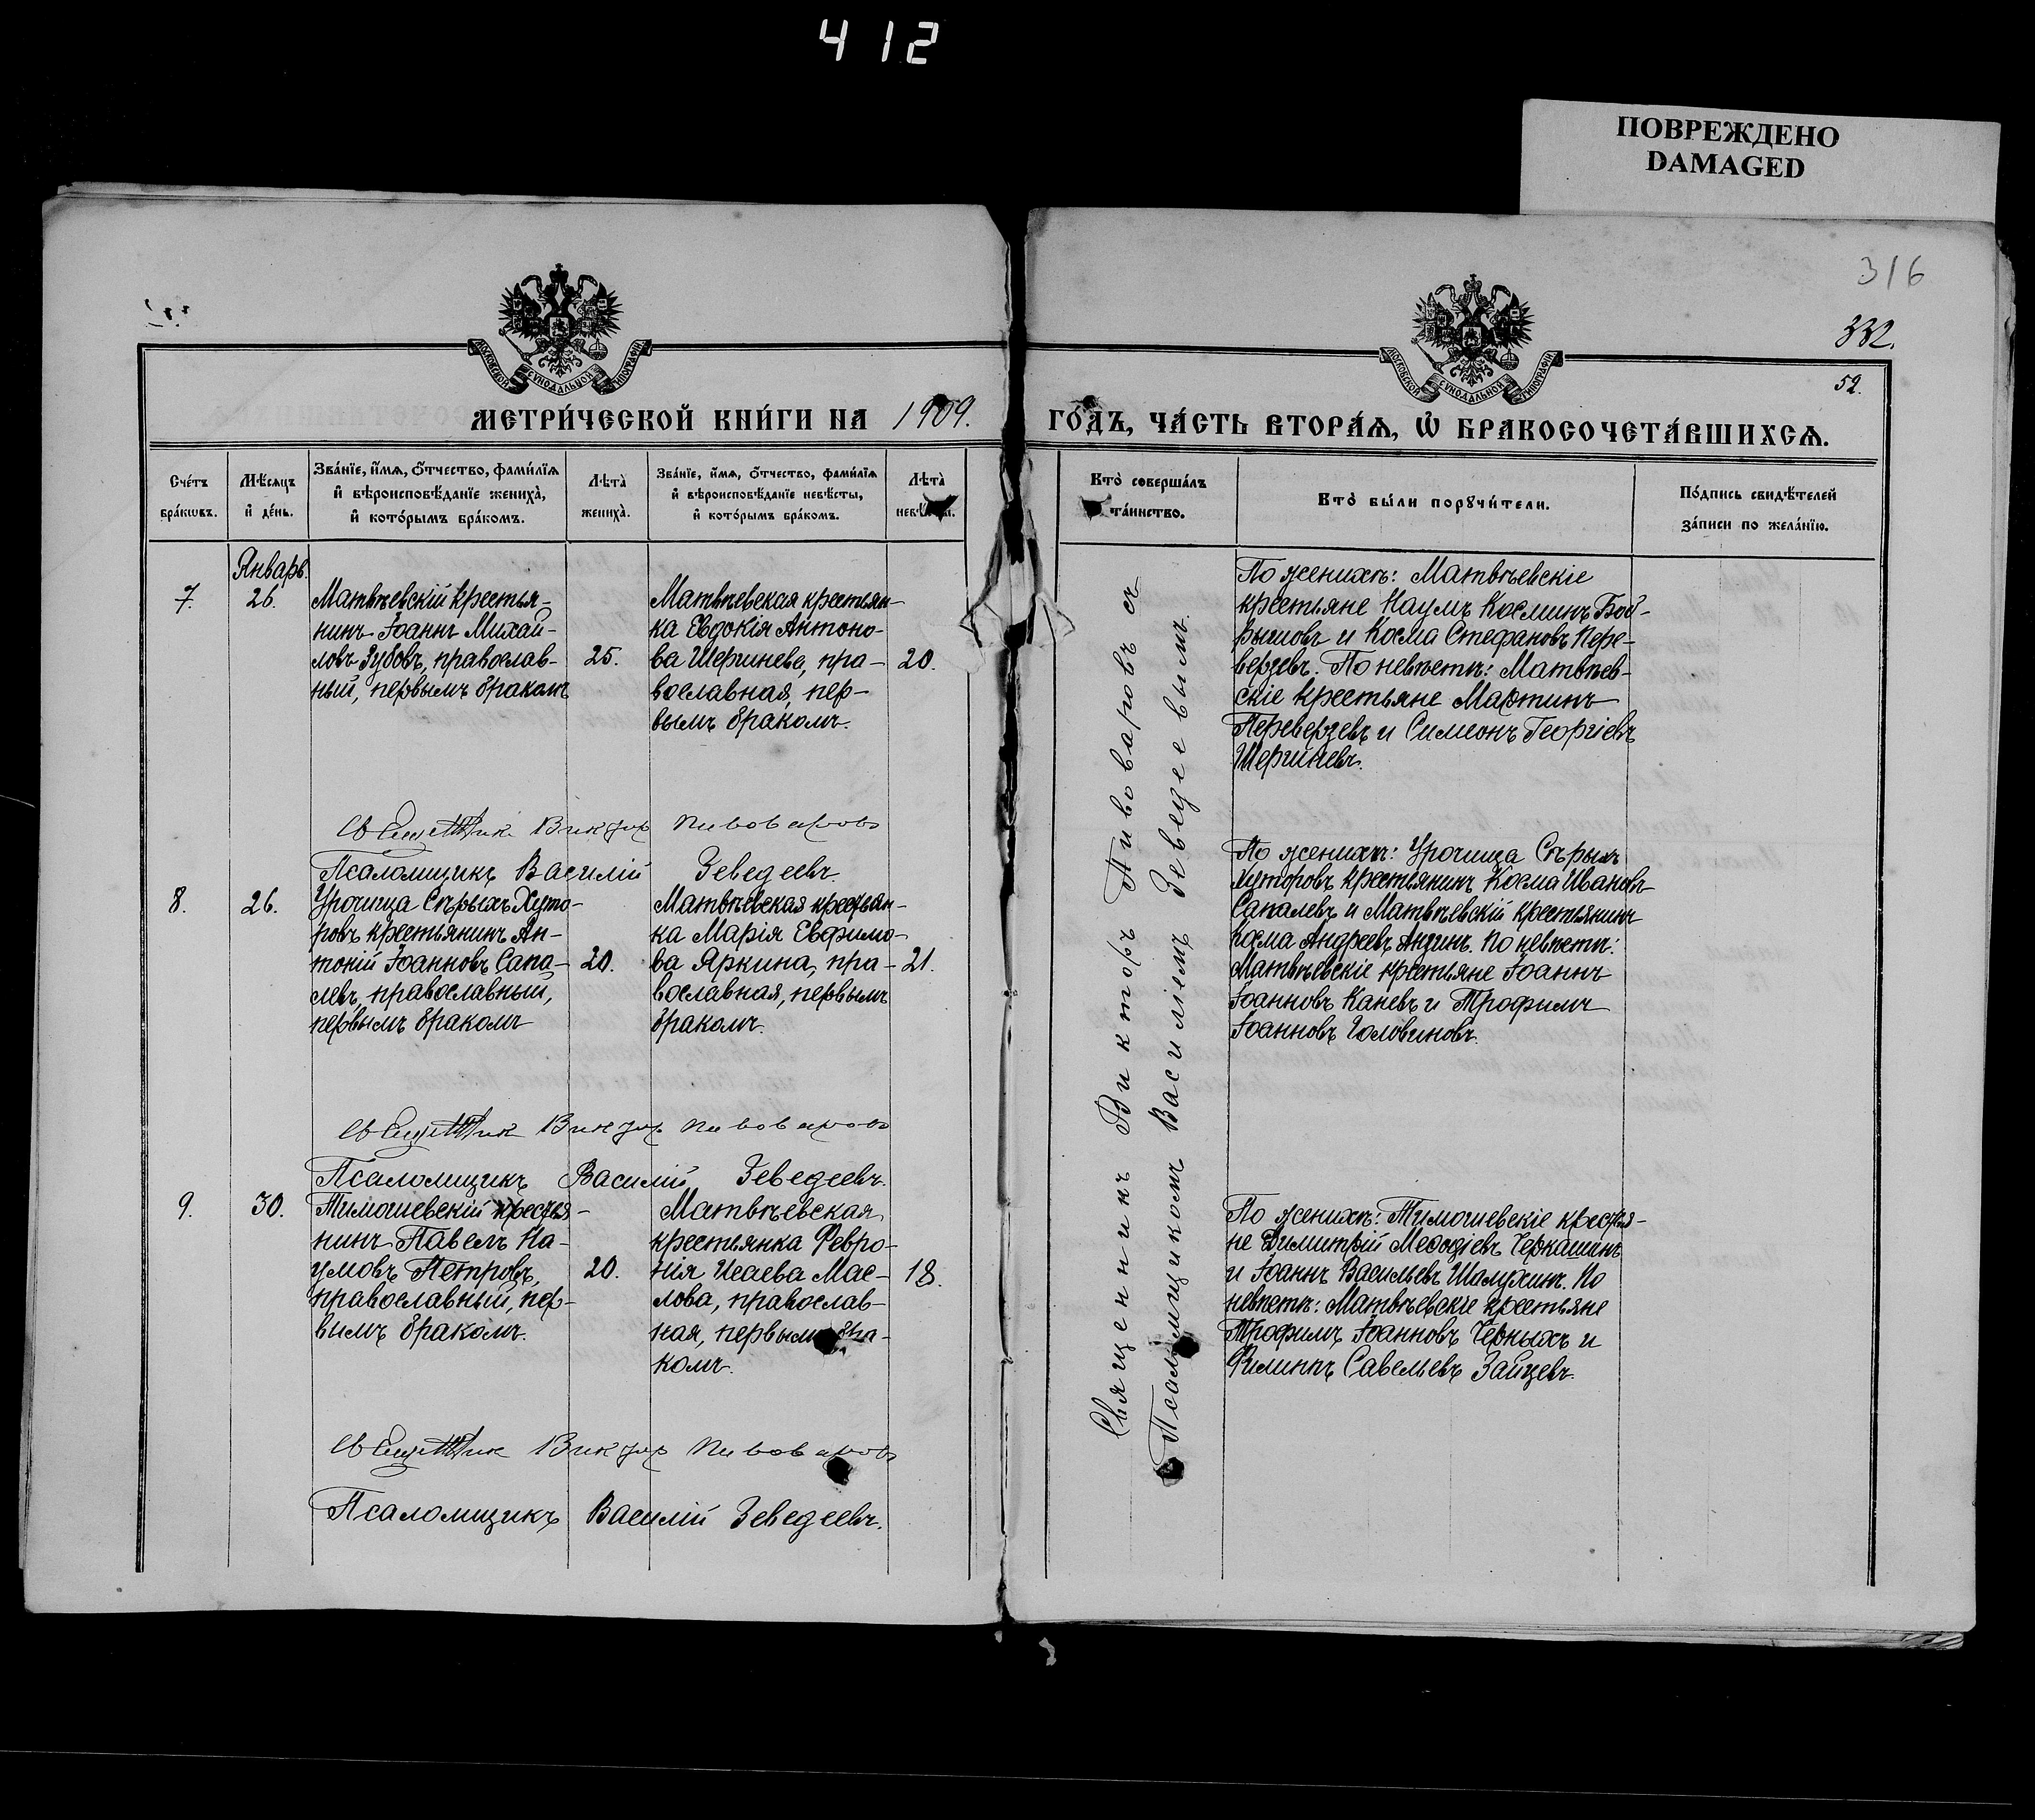 412
ПОВРЕЖДЕНО
DAMAGED
316
332.
52.
МОСКОВСКОЙ СѴНОДАЛЬНОЙ ТИПОГРАФІИ
МОСКОВСКОЙ СѴНОДАЛЬНОЙ ТИПОГРАФІИ
МЕТРИ́ЧЕСКОЙ КНИ́ГИ НА 1909. ГО́ДЪ, ЧА́СТЬ ВТОРА́Ѧ, Ѡ҆ БРАКОСОЧЕТА́ВШИХСѦ.
Сче́тъ
бра́кѡвъ.
Мѣ́сяцъ
и҆ де́нь.
Зва́нїе, и҆́мѧ, ѻ҆́тчество, фами́лїѧ
и҆ вѣроисповѣ́данїе жениха̀,
и҆ кото́рымъ бра́комъ.
Лѣта̀
жениха̀.
Зва́нїе, и҆́мѧ, ѻ҆́тчество, фами́лїѧ
и҆ вѣроисповѣ́данїе невѣ́сты,
и҆ кото́рымъ бра́комъ.
Лѣта̀
Кто̀ соверша́лъ
та́инство.
Кто̀ бы́ли порꙋчи́тели.
По́дпись свидѣ́телей
за́писи по жела́нїю.
Январь.
7.
26.
Матвѣевскій крестья-
нинъ Іоаннъ Михай-
ловъ Зубовъ, православ-
ный, первымъ бракомъ
25.
Матвѣевская крестьян-
ка Евдокія Антоно-
ва Шергинева, пра-
вославная, пер-
вымъ бракомъ.
20.
По женихѣ: Матвѣевскіе
крестьяне Наумъ Косминъ Боб-
рышовъ и Косма Стефановъ Пере-
верзевъ. По невѣстѣ: Матвѣев-
скіе крестьяне Мартинъ
Переверзевъ и Симеонъ Георгіевъ
Шергиневъ.
Священникъ Викторъ Пивоваровъ
Псаломщикъ Василій Зеведеевъ.
8.
26.
Урочища Сѣрыхъ Хуто-
ровъ крестьянинъ Ан-
тоній Іоанновъ Сапа-
левъ, православный,
первымъ бракомъ
20.
Матвѣевская крестьян-
ка Марія Евфимо-
ва Яркина, пра-
вославная, первымъ
бракомъ.
21.
По женихѣ: Урочища Сѣрыхъ
Хуторовъ крестьянинъ Косма Ивановъ
Сапалевъ и Матвѣевскій крестьянинъ
Косма Андреевъ. По невѣстѣ:
Матвѣевскіе крестьяне Іоаннъ
Іоанновъ Каневъ и Трофимъ
Іоанновъ Головиновъ.
Священникъ Викторъ Пивоваровъ
Псаломщикъ Василій Зеведеевъ.
9.
30.
Тимошевскій крестья-
нинъ Павелъ На-
умовъ Петровъ,
православный, пер-
вымъ бракомъ.
20.
Матвѣевская
крестьянка Февро-
нія Исаева Мас-
лова, православ-
ная, первымъ бра-
комъ.
18.
По женихѣ: Тимошевскіе крестья-
не Димитрій Меѳодіевъ Черкашинъ
и Іоаннъ Васильевъ Шалухинъ. По
невѣстѣ: Матвѣевскіе крестьяне
Трофимъ Іоанновъ Черныхъ и
Филиппъ Савельевъ Зайцевъ.
Священникъ Викторъ Пивоваровъ
Псаломщикъ Василій Зеведеевъ.
Священникъ Викторъ Пивоваровъ съ
Псаломщикомъ Василіемъ Зеведеевымъ.